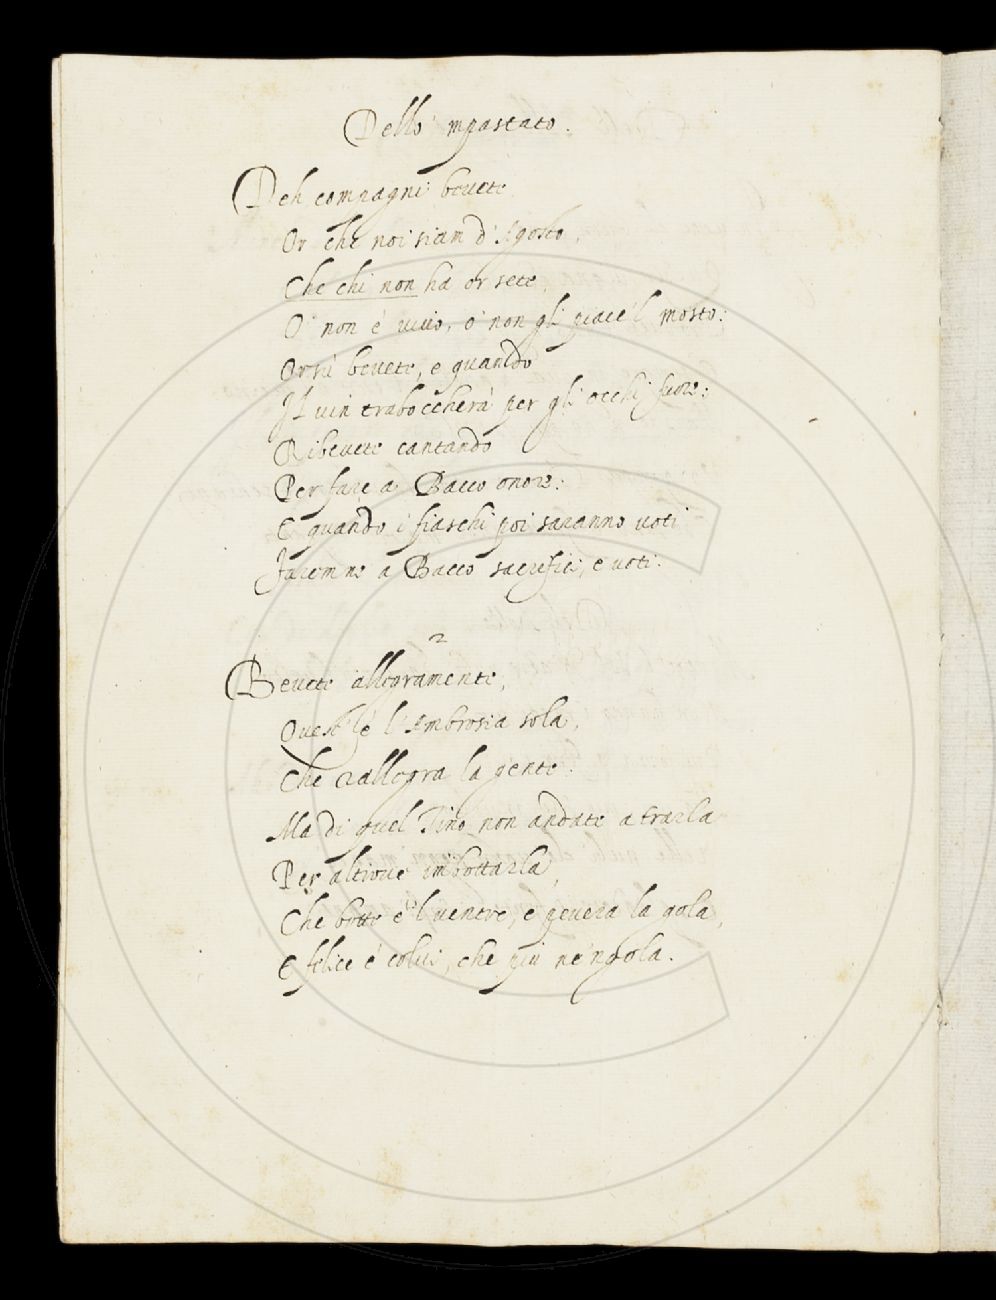 Dello 'mpastato.
Deh compagni beuete
Or che noi siam d'Agosto,
Che chi non ha or sete,
O' non è uiuo, o' non gli piace 'l mosto:
Orsù beuete, e quando
Il uin traboccherà per gli occhi fuore:
Ribeuete cantando
Per fare a Bacco onore:
E quando i fiaschi poi saranno uoti
Faremne a Bacco sacrifici, e uoti.
2
Beuete allegramente,
Quest' è l'Ambrosia sola,
Che rallegra la gente:
Ma di quel Tino non andate a trarla
Per altroue imbottarla,
Che botte è 'l uentre, e peuera la gola,
E felice è colui, che più ne 'ngola.